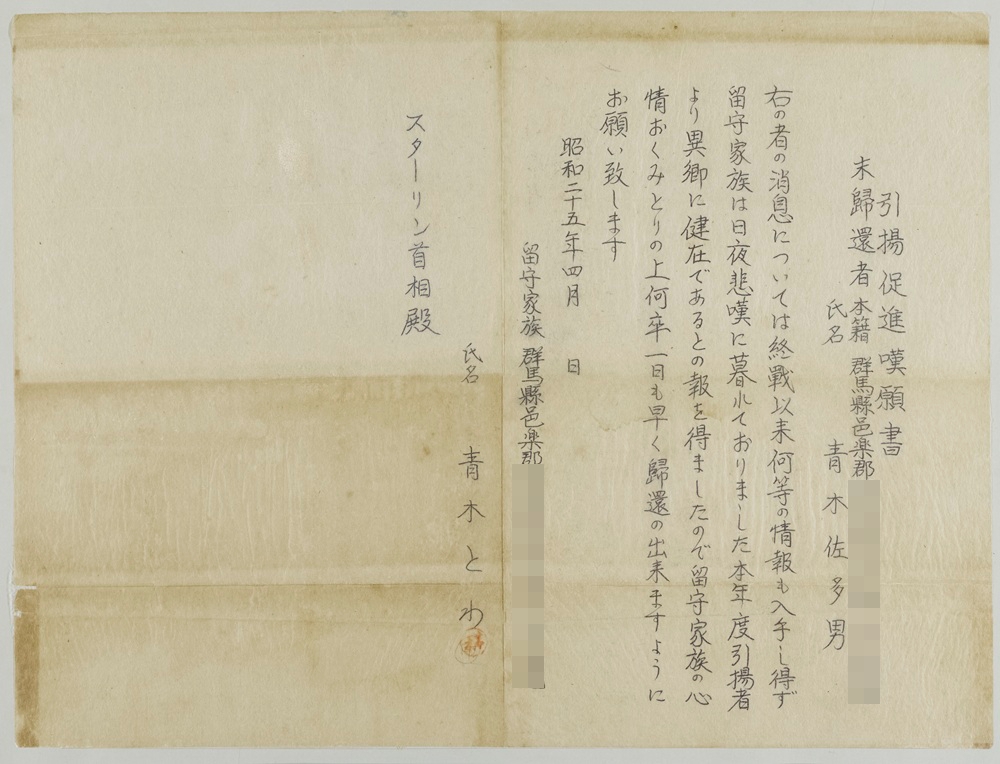 引揚促進嘆願書
未歸還者 本籍 群馬縣邑楽郡
氏名 青木佐多男
右の者の消息については終戰以来何等の情報も入手し得ず
留守家族は日夜悲嘆に暮れておりました本年度引揚者
より異郷に健在であるとの報を得ましたので留守家族の心
情おくみとりの上何卒一日も早く歸還の出来ますように
お願い致します
昭和二十五年四月 日
留守家族 群馬縣邑楽郡
氏名 青木とわ
スターリン首相殿